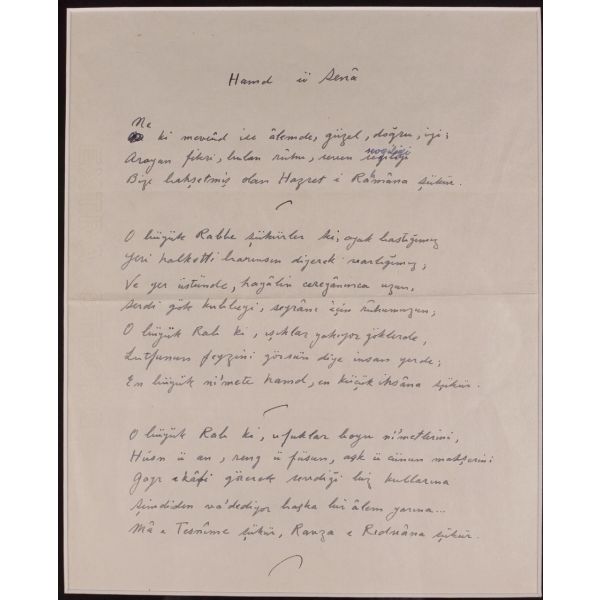 Hamd ü Senâ
Ne
ki mevcûd ise âlemde, güzel, doğru, iyi;
Arayan fikri, bulan rûhu, seven sevgiliyi
Bize bahşetmiş olan Hazret-i Rahmâna şükür.
O büyük Rabbe şükürler ki, ayak bastığımız
Yeri halketti barınsın diyerek varlığımız;
Ve yer üstünde, hayâlin cereyânınca uzun,
Serdi gök kubbeyi, seyrânı için rûhumuzun;
O büyük Rab ki, ışıklar yakıyor göklerde,
Lutfunun feyzini görsün diye insan yerde;
En büyük ni'mete hamd, en küçük ihsâna şükür.
O büyük Rab ki, ufuklar boyu ni'metlerini,
Hüsn ü an, reng ü füsun, aşk ü cünun mahşerini
Gayr-ı kâfi görerek sevdiği biz kullarına
Şimdiden va'dediyor başka bir âlem yarına...
Mâ-i Tesnîme şükür, Ravza-i Rıdvâna şükür.